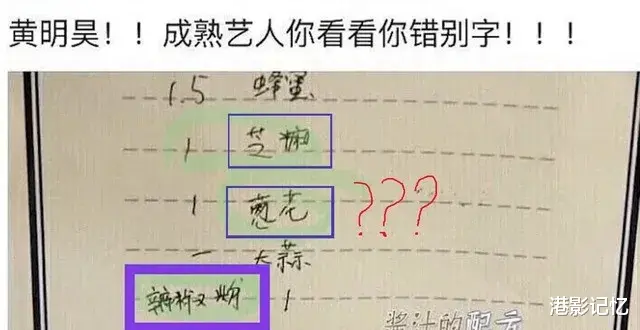 黄明昊！！成熟艺人你看看你错别字！！！
1.5 蜂蜜
1 芝
1 花
???
一 大蒜
粉 1
酱汁的配方
港影记忆